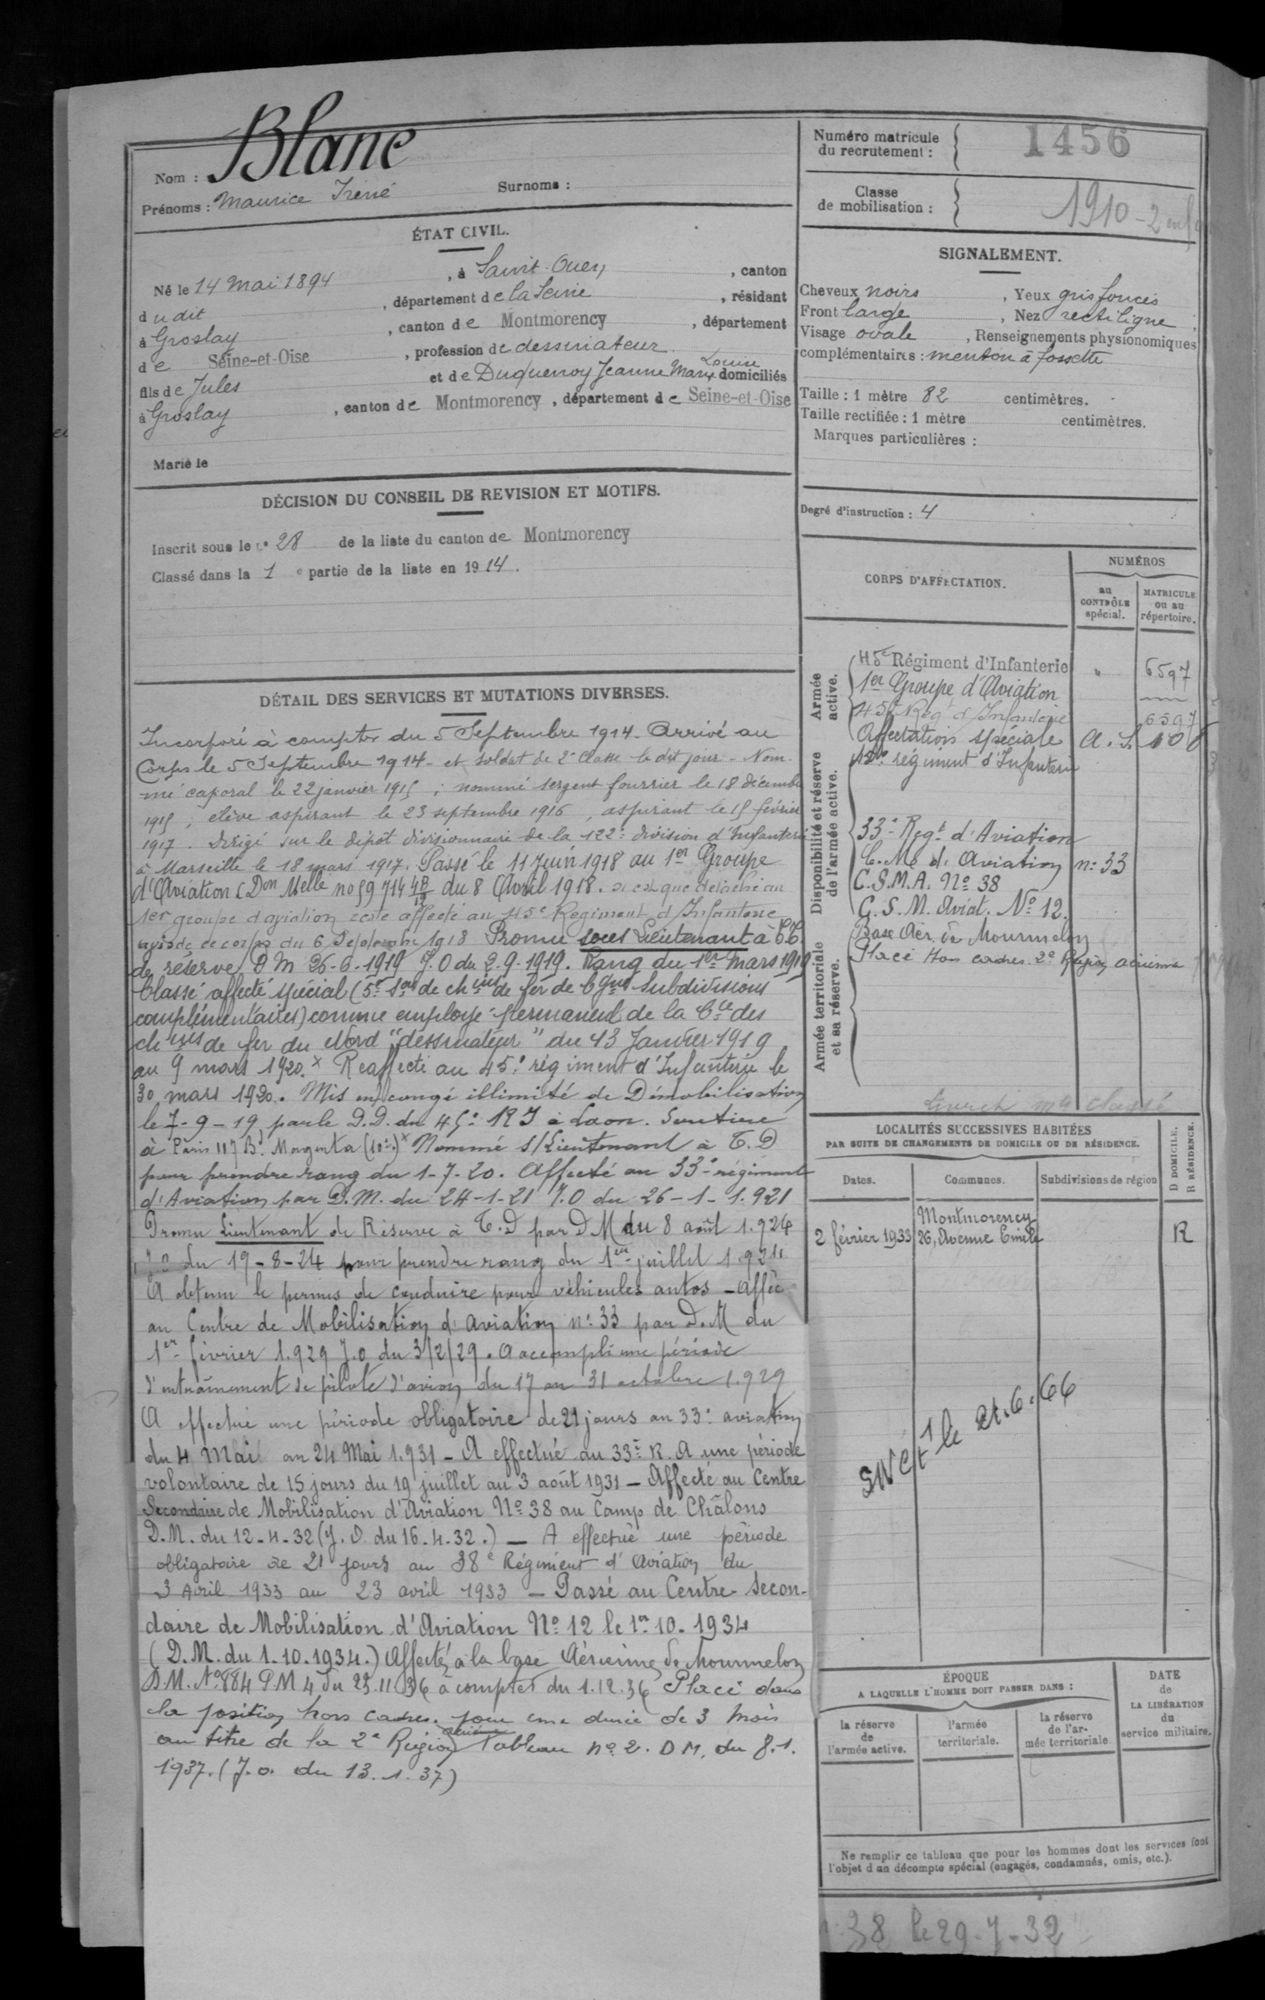 Nom : Blanc
Prénoms : Maurice Irené Surnoms :
Numéro matricule du recrutement : 1456
Classe de mobilisation : 1910 - 2 enf
ÉTAT CIVIL.
Né le 14 mai 1894, à Saint-Ouen, canton
dudit, département de la Seine, résidant
à Groslay, canton de Montmorency, département
de Seine-et-Oise, profession de dessinateur
fils de Jules et de Duquenoy Jeanne Marie Louise domiciliés
à Groslay, canton de Montmorency, département de Seine-et-Oise
Marié le
SIGNALEMENT.
Cheveux noirs, Yeux gris foncés
Front large, Nez rectiligne
Visage ovale, Renseignements physionomiques
complémentaires : menton à fossette
Taille : 1 mètre 82 centimètres.
Taille rectifiée : 1 mètre centimètres.
Marques particulières :
Degré d'instruction : 4
DÉCISION DU CONSEIL DE REVISION ET MOTIFS.
Inscrit sous le n° 28 de la liste du canton de Montmorency
Classé dans la 1e partie de la liste en 1914.
DÉTAIL DES SERVICES ET MUTATIONS DIVERSES.
Incorporé à compter du 5 Septembre 1914. Arrivé au
Corps le 5 Septembre 1914 et soldat de 2e classe le dit jour. Nom-
mé caporal le 22 janvier 1915 ; nommé sergent fourrier le 18 décembre
1915 ; élève aspirant le 23 septembre 1916, aspirant le 15 février
1917. Dirigé sur le dépôt divisionnaire de la 122e division d'Infanterie
à Marseille le 18 mars 1917. Passé le 11 Juin 1918 au 1er Groupe
d'Aviation (Don Melle no 59714 4B/12 du 8 Avril 1918.
1er groupe d'aviation reste affecté au 45e Régiment d'Infanterie
du 6 Septembre 1918 Promu sous Lieutenant à T.T.
de réserve DM 26-6-1919 J.O du 2-9-1919. Rang du 1er mars 1919
Classé affecté spécial (5e Son de chins de fer de Cgne Subdivisions
complémentaires) comme employé permanent de la Cie des
chins de fer du Nord "dessinateur" du 13 Janvier 1919
au 9 mars 1920. x Réaffecté au 45e régiment d'Infanterie le
30 mars 1920. Mis en congé illimité de Démobilisation
le 7-9-19 par le D.D. du 45e RI à Laon. Se retire
à Paris 117 Bd Magenta (10e) x Nommé s/Lieutenant à T.D
pour prendre rang du 1-7-20. Affecté au 33e régiment
d'Aviation par D.M. du 24-1-21 J.O du 26-1-1.921
Promu Lieutenant de Réserve à T.D par DM du 8 août 1.924
J.O du 19-8-24 pour prendre rang du 1er juillet 1.924
A obtenu le permis de conduire pour véhicules autos - Affec
au Centre de Mobilisation d'aviation n° 33 par D.M du
1er février 1.929 J.O du 3/2/29. A accompli une période
d'entraînement de pilote d'avion du 17 au 31 octobre 1.929
A effectué une période obligatoire de 21 jours au 33e aviation
du 4 Mai au 24 Mai 1.931 - A effectué au 33e R.A une période
volontaire de 15 jours du 19 juillet au 3 août 1931 - Affecté au Centre
Secondaire de Mobilisation d'Aviation N° 38 au Camp de Châlons
D.M. du 12-4-32 (J.O. du 16.4.32.) - A effectué une période
obligatoire de 21 jours au 38e Régiment d'Aviation du
3 Avril 1933 au 23 avril 1933 - Passé au Centre Secon-
daire de Mobilisation d'Aviation N° 12 le 1er 10. 1934
(D.M. du 1-10-1934.) Affecté à la base Aérienne de Mourmelon
DM. N° 884 PM4 du 23.11.36 à compter du 1.12.36 Placé dans
la position hors cadres pour une durée de 3 mois
au titre de la 2e Région aérienne Tableau n° 2. DM. du 8.1.
1937. (J.O. du 13.1.37)
CORPS D'AFFECTATION.
NUMÉROS
au CONTRÔLE spécial.
MATRICULE ou au répertoire.
Armée active.
45e Régiment d'Infanterie " 6597
1er Groupe d'Aviation
45e Régt d'Infanterie 6597
Disponibilité et réserve de l'armée active.
Affectation spéciale A.S. 108
régiment d'Infanterie
33e Régt d'Aviation
C. Me d'Aviation n° 33
C.S.M.A. N° 38
C.S.M. Aviat. N° 12.
Armée territoriale et sa réserve.
Base Aér. de Mourmelon
Placé Hors cadres 2e Région aérienne
Livret classé
LOCALITÉS SUCCESSIVES HABITÉES
PAR SUITE DE CHANGEMENTS DE DOMICILE OU DE RÉSIDENCE.
Dates. Communes. Subdivisions de région D DOMICILE. R RÉSIDENCE.
2 février 1933 Montmorency R
26, Avenue Emile
le 21.6.66
ÉPOQUE
A LAQUELLE L'HOMME DOIT PASSER DANS :
la réserve de l'armée active.
l'armée territoriale.
la réserve de l'armée territoriale
DATE de LA LIBÉRATION du service militaire.
Ne remplir ce tableau que pour les hommes dont les services font
l'objet d'un décompte spécial (engagés, condamnés, omis, etc.).
38 le 29-7-32